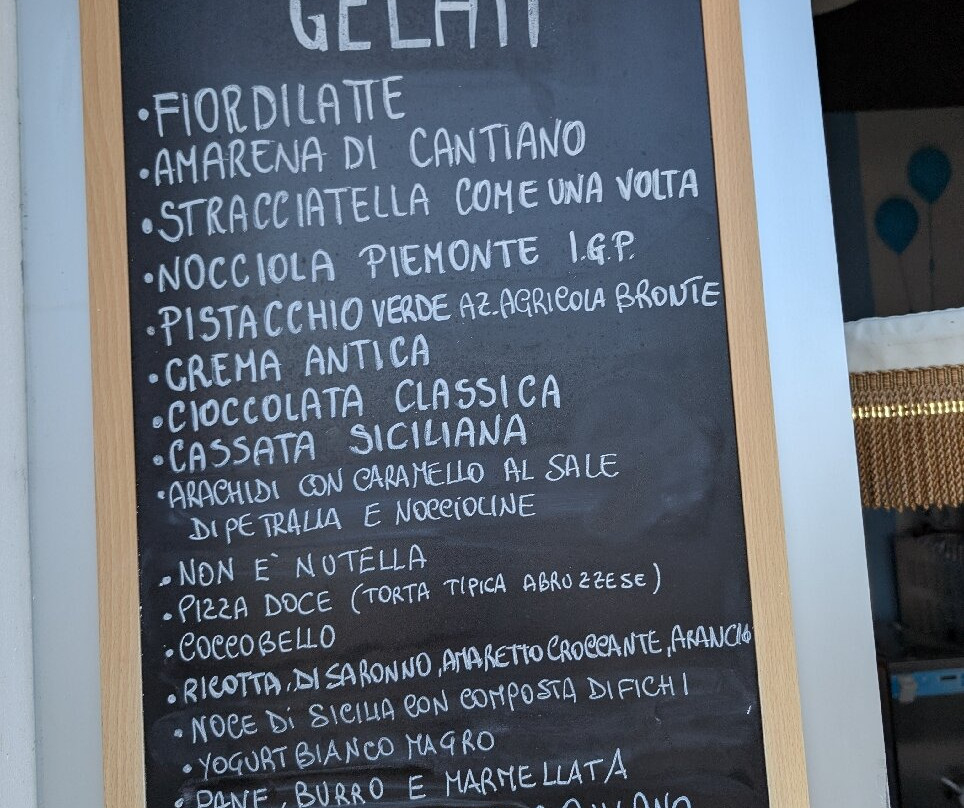 GELATI
• FIORDILATTE
• AMARENA DI CANTIANO
• STRACCIATELLA COME UNA VOLTA
• NOCCIOLA PIEMONTE I.G.P.
• PISTACCHIO VERDE AZ. AGRICOLA BRONTE
• CREMA ANTICA
• CIOCCOLATA CLASSICA
• CASSATA SICILIANA
• ARACHIDI CON CARAMELLO AL SALE
DI PETRALIA E NOCCIOLINE
• NON E' NUTELLA
• PIZZA DOCE (TORTA TIPICA ABRUZZESE)
• COCCOBELLO
• RICOTTA, DISARONNO, AMARETTO CROCCANTE, ARANCIO
• NOCE Di SICILIA CON COMPOSTA DI FICHI
• YOGURT BIANCO MAGRO
• PANE, BURRO E MARMELLATA